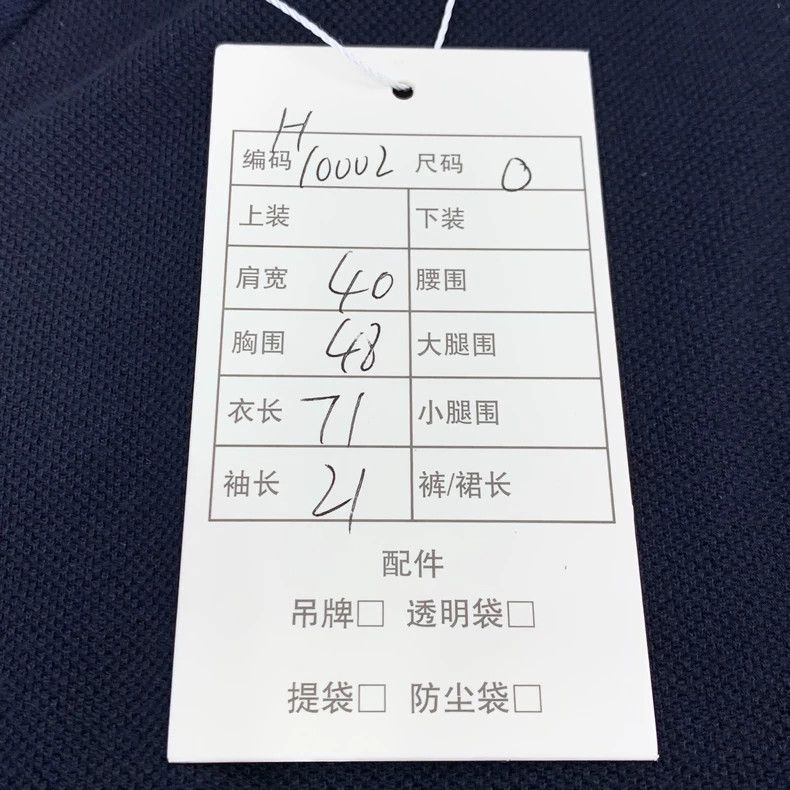 H
编码 10002 尺码 0
上装 下装
肩宽 40 腰围
胸围 48 大腿围
衣长 71 小腿围
袖长 21 裤/裙长
配件
吊牌□ 透明袋□
提袋□ 防尘袋□